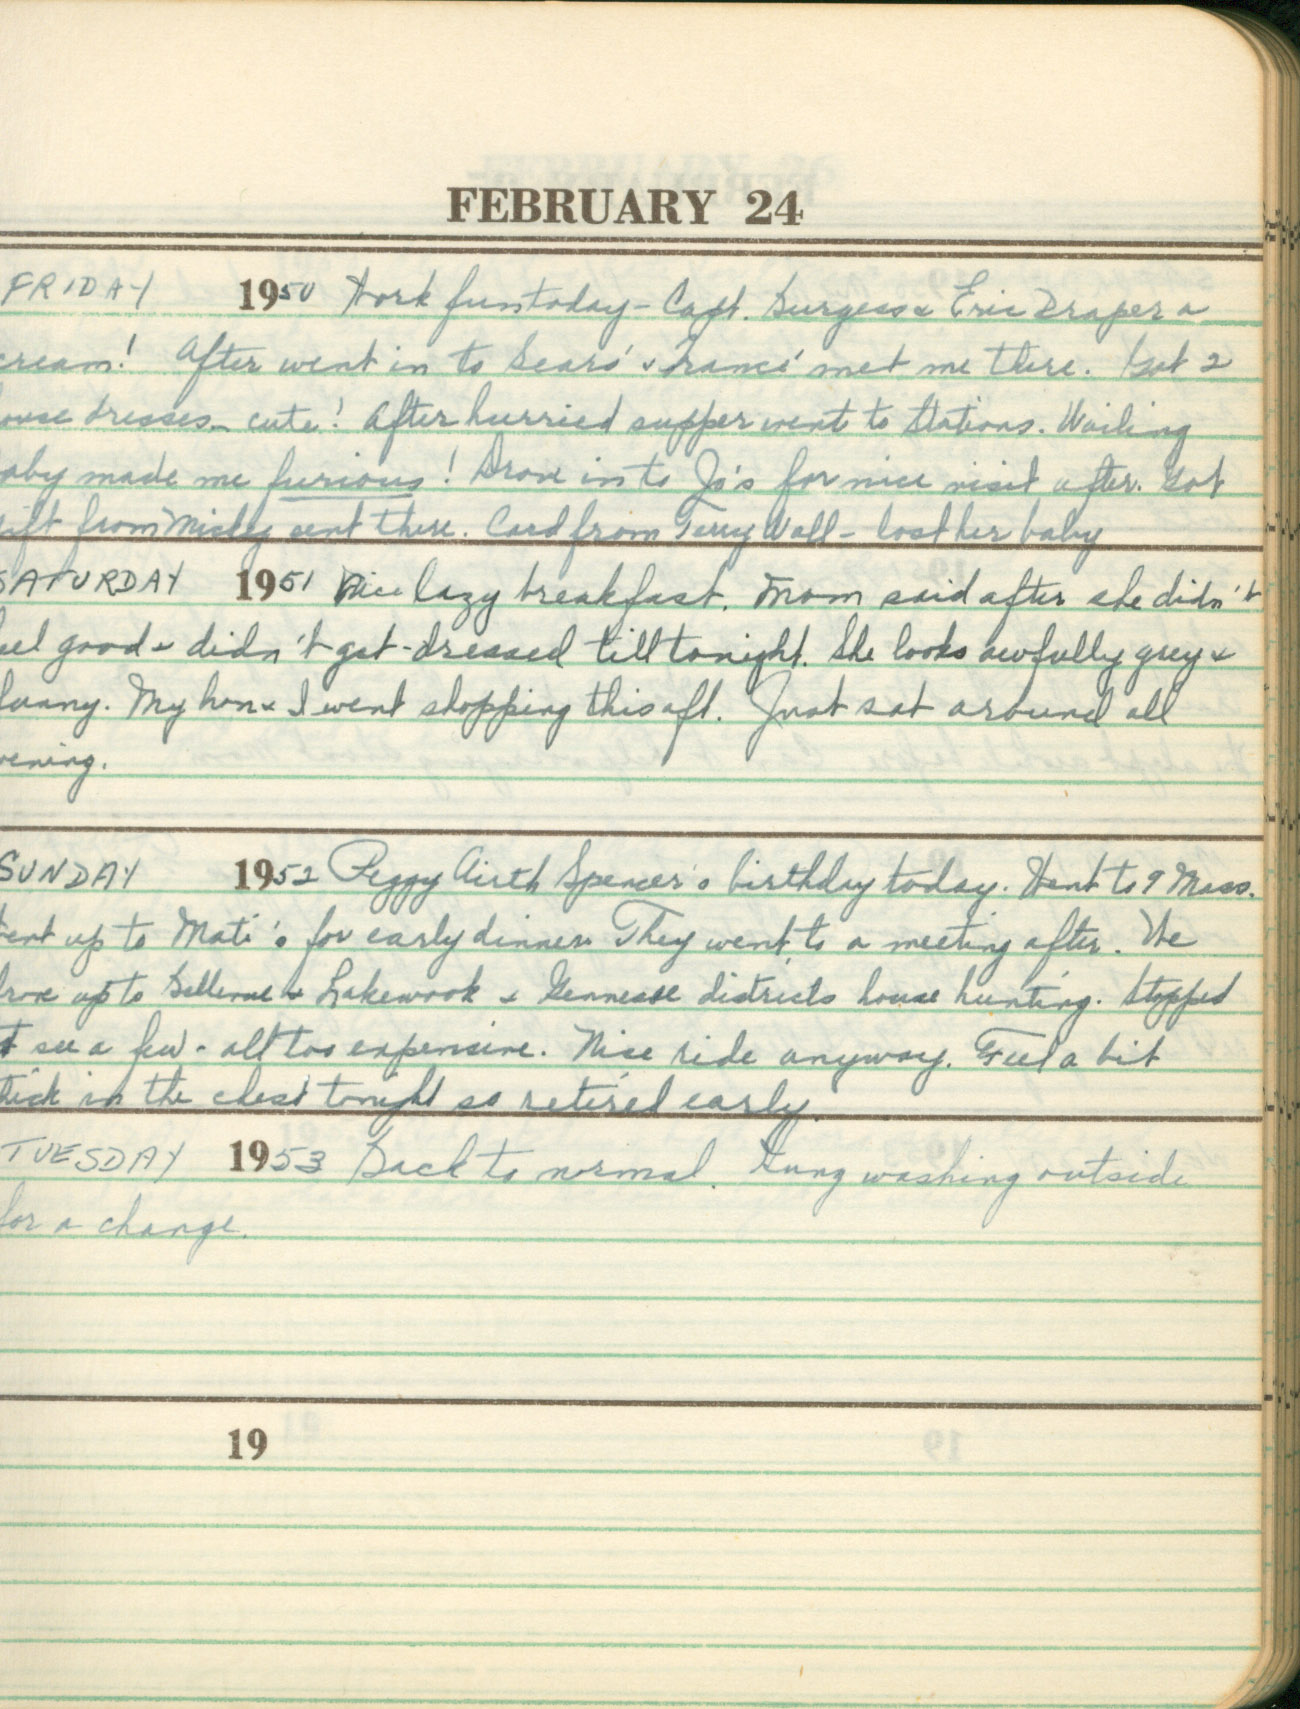 FEBRUARY 24
FRIDAY 1950 Work fun today - Capt. Burgess & Eric Draper a
cream! After went in to Sears' & Franci' met me there. Got 2
ouse dresses - cute! After hurried supper went to Stations. Wailing
aby made me furious! Drove in to Jo's for nice visit after. Got
ift from Mickey sent there. Card from Terry Wall - lost her baby
SATURDAY 1951 Nice lazy breakfast. Mom said after she didn't
eel good & didn't get dressed till tonight. She looks awfully grey &
funny. My hon & I went shopping this aft. Just sat around all
vening.
SUNDAY 1952 Peggy Airth Spencer's birthday today. Went to 9 Mass.
ent up to Mati's for early dinner. They went to a meeting after. We
rove up to Bellevue & Lakewook & Gennesse districts house hunting. Stopped
t see a few - all too expensive. Nice ride anyway. Feel a bit
thick in the chest tonight so retired early.
TUESDAY 1953 Back to normal. Hung washing outside
for a change.
19